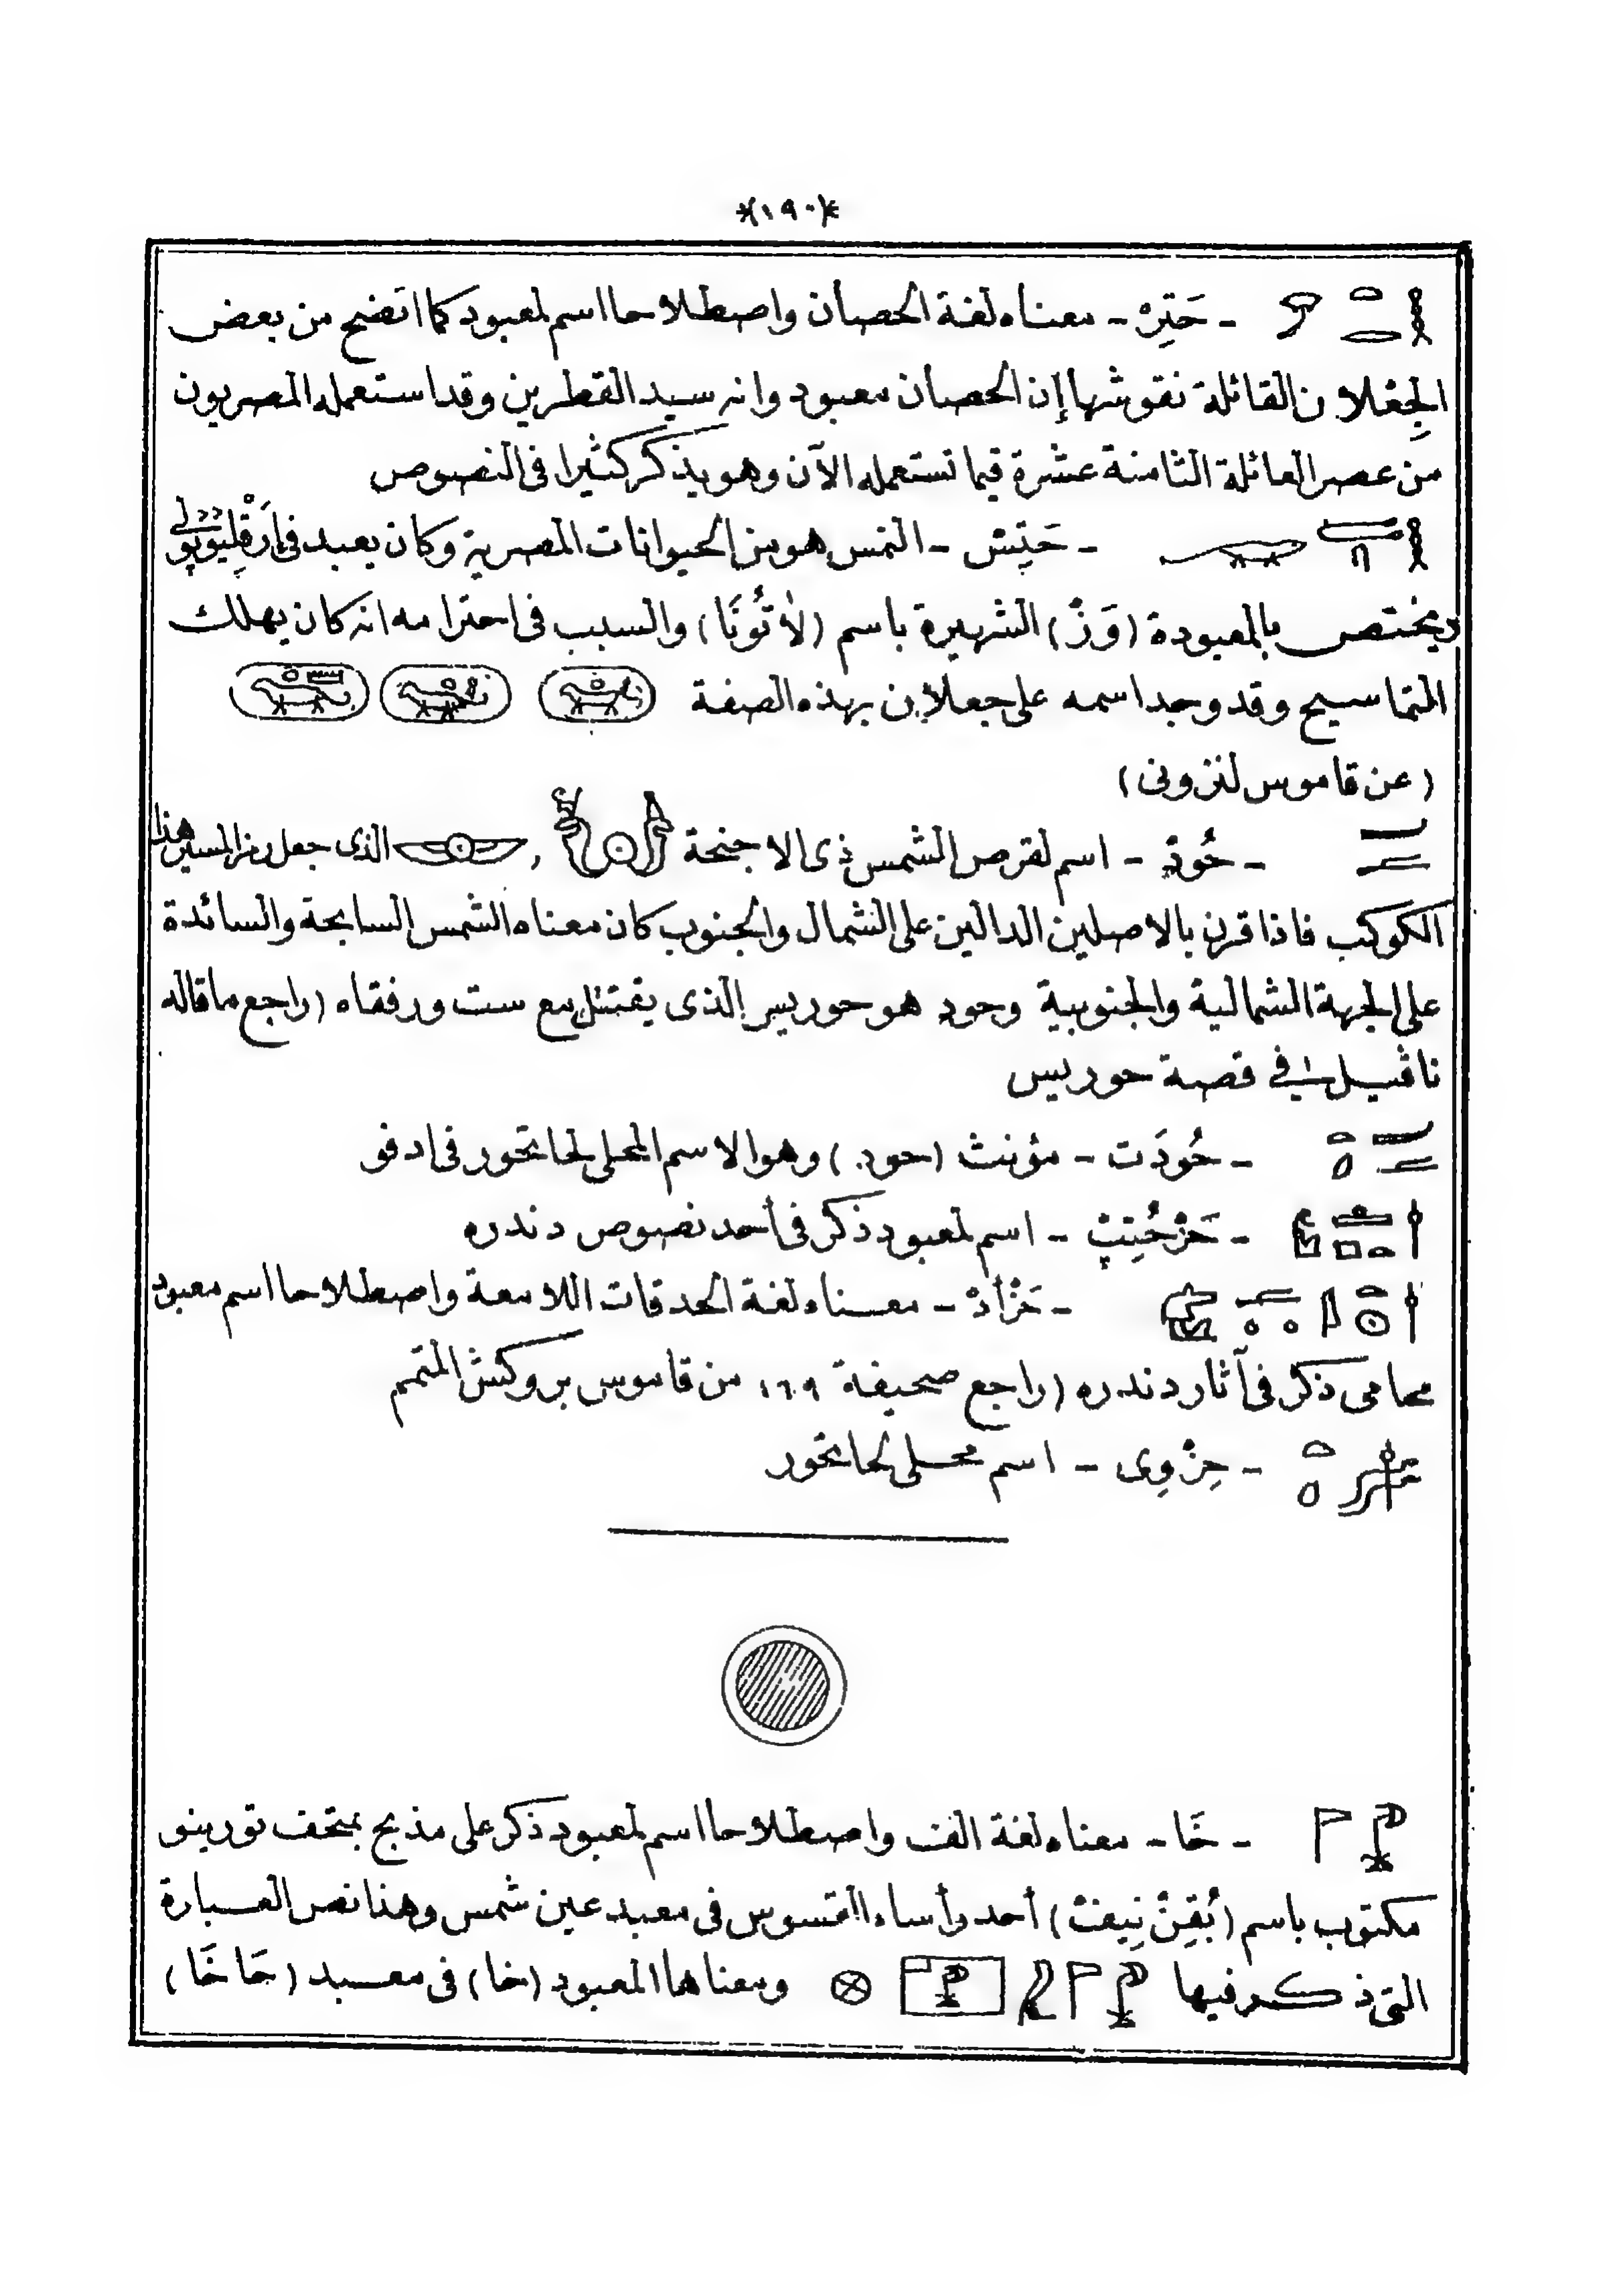 *(١٩٠)*
- حَتِرْ - معناه لغة الحصان واصطلاحا اسم لمعبود كما اتضح من بعض
الجِعْلان القائلة نقوشها إن الحصان معبود وانه سيد القطرين وقد استعمله المصريون
من عصر العائلة الثامنة عشرة فيما تستعمله الآن وهو يذكر كثيرا في النصوص
- حَتِبِسْ - النمس هو من الحيوانات المصرية وكان يعبد في
ويختص بالمعبودة (وَزّ) الشهيرة باسم (لاَتُونَا) والسبب في احترامه انه كان يهلك
التماسيح وقد وجد اسمه على جعلان بهذه الصفة
(عن قاموس لنزونى)
- حُودْ - اسم لقرص الشمس ذى الاجنحة , الذى جعل رمزا لمسير هذا
الكوكب فاذا قرن بالاصلين الدالين على الشمال والجنوب كان معناه الشمس السابحة والسائدة
على الجهة الشمالية والجنوبية وحود هو حوريس الذى يقتتل مع ست ورفقاه (راجع ما قاله
ناڤيل في قصة حوريس
- حُودَت - مؤنث (حود) وهو الاسم المحلى لحاتحور فى ادفو
- حَزْحُتِپْ - اسم لمعبود ذكر فى أحد نصوص دندره
- حَزْأدْ - معناه لغة الحدقات اللامعة واصطلاحا اسم معبود
محامى ذكر فى آثار دندره (راجع صحيفة ٨٦٩ من قاموس بروكش المتمم
- حِزْوِى - اسم محلى لحاتحور
- خَا - معناه لغة الف واصطلاحا اسم لمعبود ذكر على مذبح بمتحف تورينو
مكتوب باسم أحد رأساء القسوس فى معبد عين شمس وهذا نص العبارة
التى ذكر فيها ومعناها المعبود (خا) فى معبد (حَاخَا)